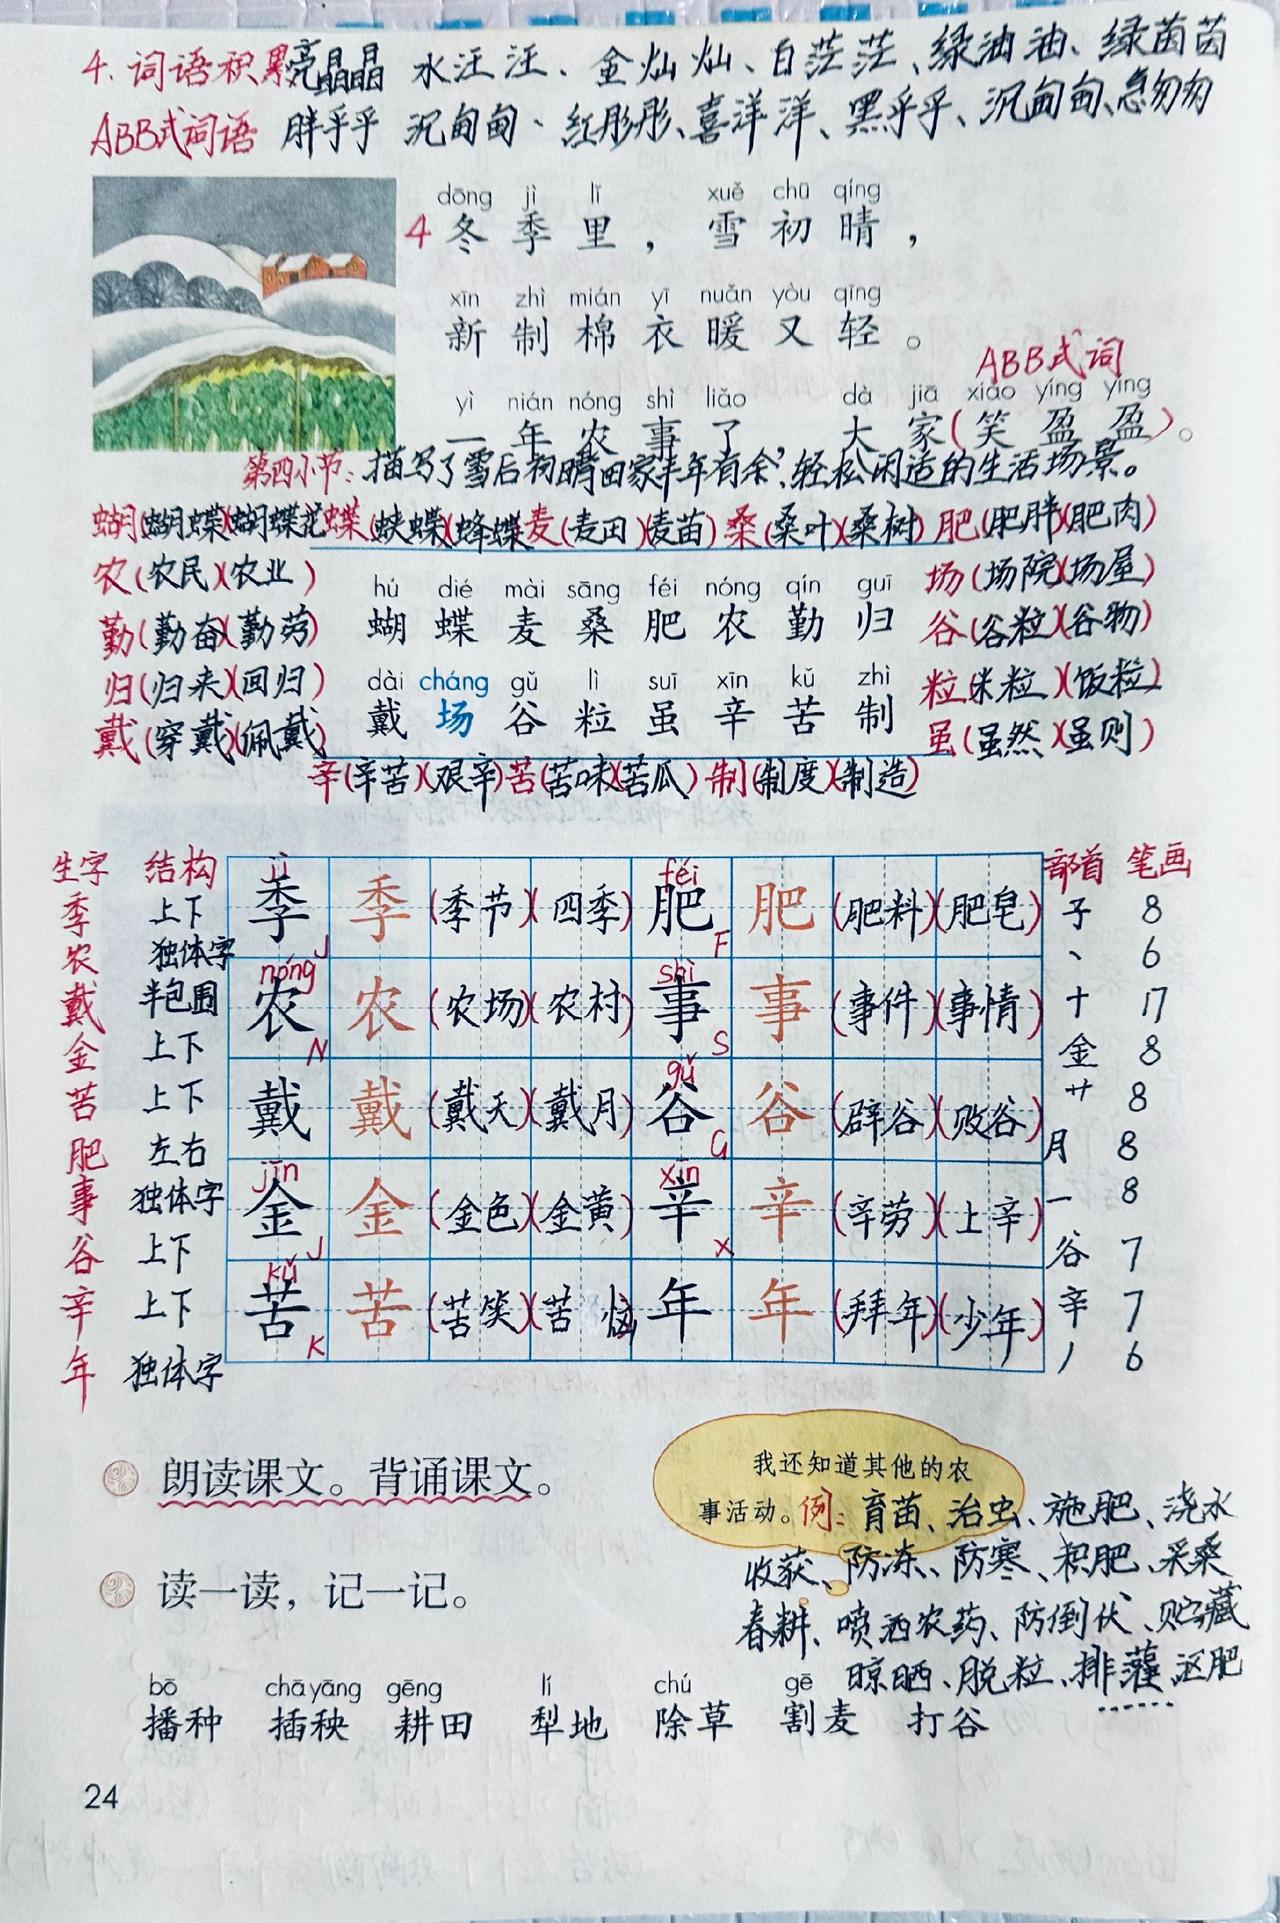 4. 词语积累 亮晶晶 水汪汪、金灿灿、白茫茫、绿油油、绿茵茵
ABB式词语 胖乎乎 沉甸甸、红彤彤、喜洋洋、黑乎乎、沉甸甸、急匆匆
dōng jì lǐ xuě chū qíng
4 冬季里，雪初晴，
xīn zhì mián yī nuǎn yòu qīng
新制棉衣暖又轻。
ABB式词
yì nián nóng shì liǎo dà jiā xiào yíng yíng
一年农事了 大家(笑盈盈)。
第四小节：描写了雪后初晴田家丰年有余，轻松闲适的生活场景。
蝴(蝴蝶)(蝴蝶花)蝶(蛱蝶)(蜂蝶)麦(麦田)(麦苗)桑(桑叶)(桑树)肥(肥胖)(肥肉)
农(农民)(农业) hú dié mài sāng féi nóng qín guī 场(场院)(场屋)
勤(勤奋)(勤劳) 蝴蝶麦桑肥农勤归 谷(谷粒)(谷物)
归(归来)(回归) dài cháng gǔ lì suī xīn kǔ zhì 粒(米粒)(饭粒)
戴(穿戴)(佩戴) 戴场谷粒虽辛苦制 虽(虽然)(虽则)
辛(辛苦)(艰辛)苦(苦味)(苦瓜)制(制度)(制造)
生字 结构 jì féi 部首 笔画
季 上下 季 季 (季节)(四季) 肥 肥 (肥料)(肥皂) 子 8
J F
农 独体字 nóng shì 丶 6
农 农 (农场)(农村) 事 事 (事件)(事情)
N S
戴 半包围 十 17
金 上下 gǔ 金 8
苦 上下 戴 戴 (戴天)(戴月) 谷 谷 (辟谷)(败谷) 艹 8
G
肥 左右 jīn xīn 月 8
事 独体字 金 金 (金色)(金黄) 辛 辛 (辛劳)(上辛) 一 8
J X
谷 上下 kǔ 谷 7
辛 上下 苦 苦 (苦笑)(苦恼) 年 年 (拜年)(少年) 辛 7
K
年 独体字 丿 6
朗读课文。背诵课文。
我还知道其他的农
事活动。例：育苗、治虫、施肥、浇水
收获、防冻、防寒、积肥、采桑
读一读，记一记。
春耕、喷洒农药、防倒伏、贮藏
晾晒、脱粒、排灌、沤肥
bō chā yāng gēng lí chú gē
播种 插秧 耕田 犁地 除草 割麦 打谷
24